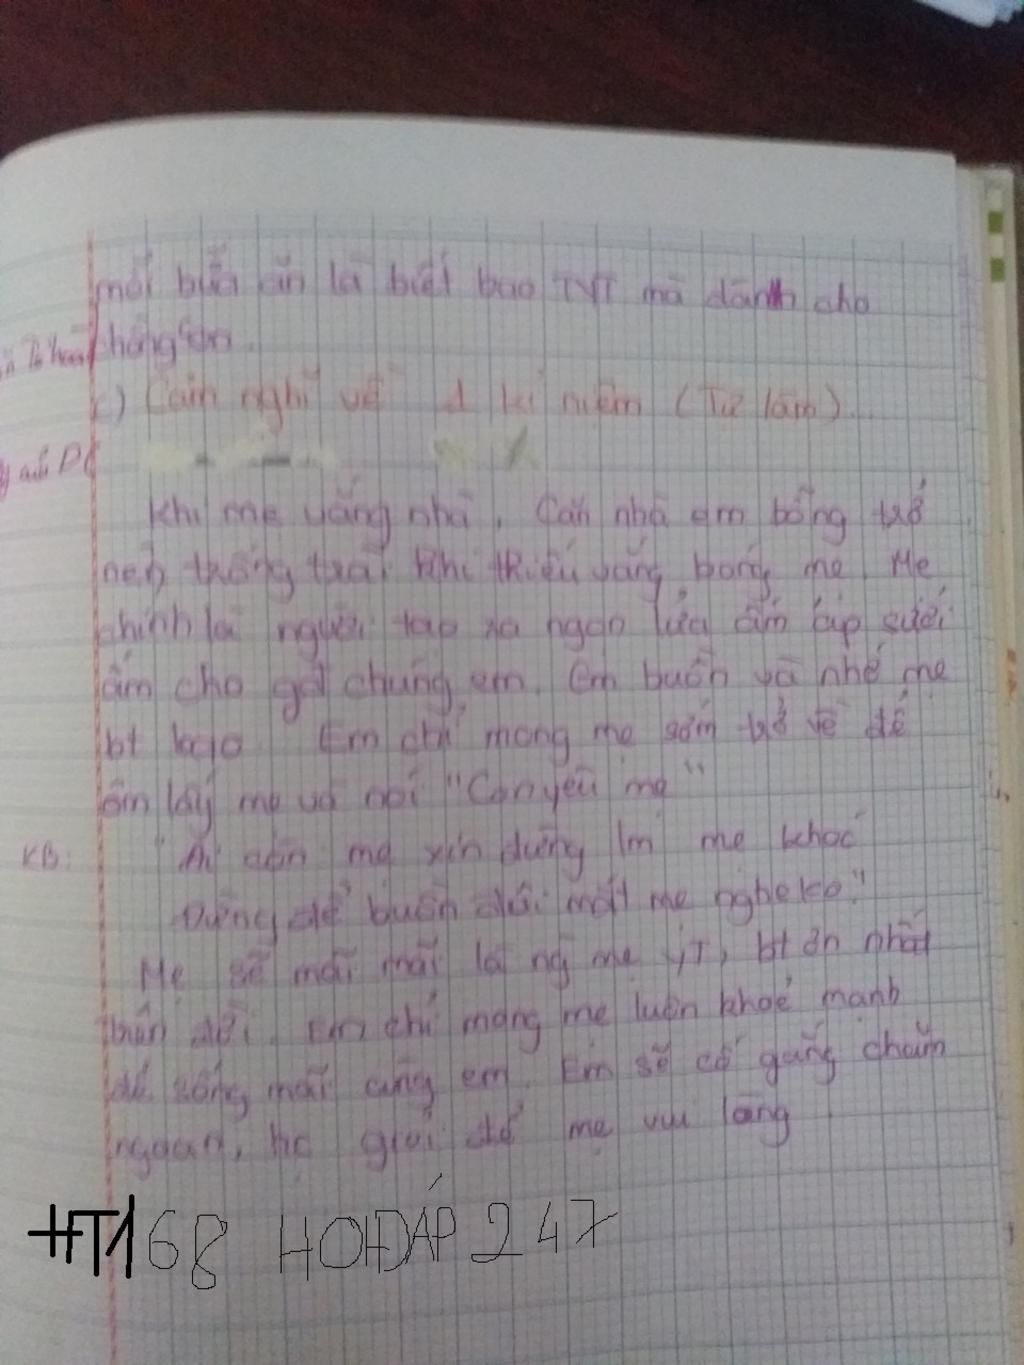 mỗi bữa ăn là biết bao TYT mà dành cho
chồng con.
c) Cảm nghĩ về 1 kỉ niệm (Tự làm)
Khi mẹ vắng nhà, Căn nhà em bỗng trở
nên trống trải khi thiếu vắng bóng mẹ. Mẹ
chính là người tạo ra ngọn lửa ấm áp sưởi
ấm cho gđ chúng em. Em buồn và nhớ mẹ
bt bao Em chỉ mong mẹ sớm trở về để
ôm lấy mẹ và nói "Con yêu mẹ"
KB: "Ai còn mẹ xin đừng làm mẹ khóc
Đừng để buồn đôi mắt mẹ nghe ko."
Mẹ sẽ mãi mãi là ng mẹ yT, bt ơn nhất
trên đời. Em chỉ mong mẹ luôn khoẻ mạnh
để sống mãi cùng em. Em sẽ cố gắng chăm
ngoan, học giỏi để mẹ vui lòng
HT168 HOIĐÁP 247